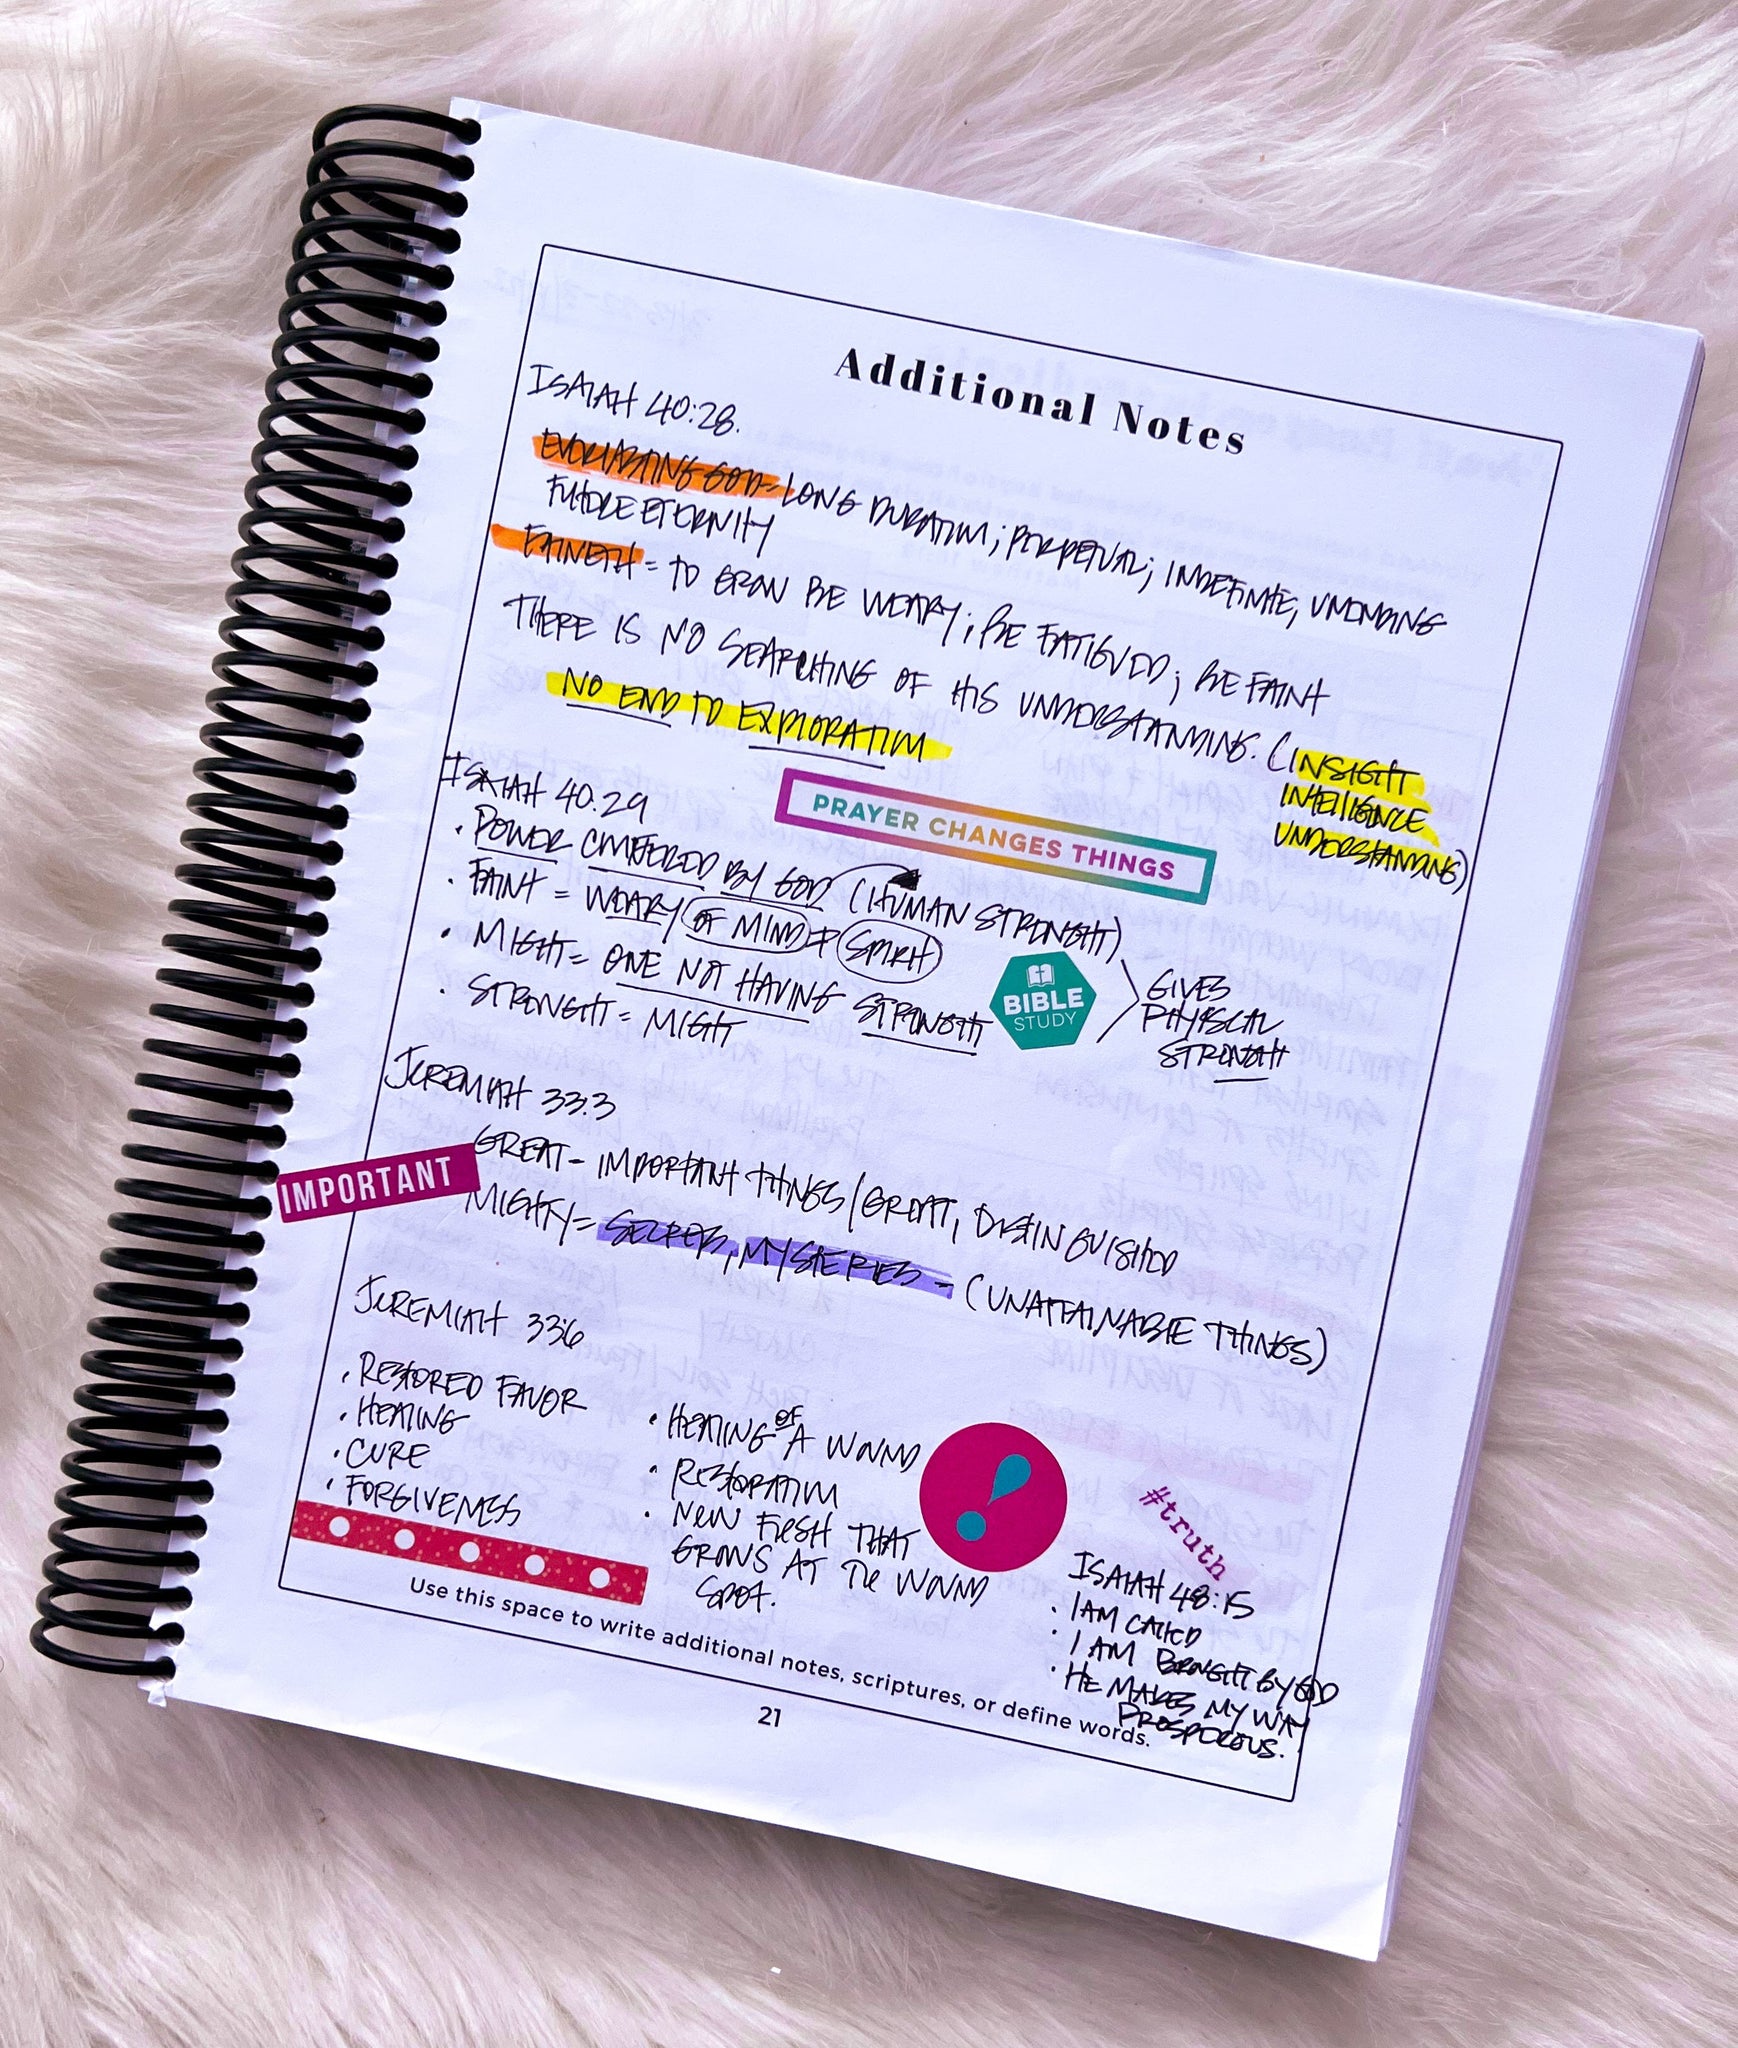 Additional Notes
ISAIAH 40:28.
EVERLASTING GOD = LONG DURATION; PERPETUAL; INDEFINITE, UNENDING
FUTURE ETERNITY
FAINETH = TO GROW BE WEARY; BE FATIGUED; BE FAINT
THERE IS NO SEARCHING OF HIS UNDERSTANDING. (INSIGHT
INTELLIGENCE
UNDERSTANDING)
NO END TO EXPLORATION
PRAYER CHANGES THINGS
ISAIAH 40:29
• POWER CONFERRED BY GOD (HUMAN STRENGHT)
• FAINT = WEARY OF MIND & SPIRIT
• MIGHT = ONE NOT HAVING STRENGTH
• STRENGHT = MIGHT
BIBLE
STUDY
GIVES
PHYSICAL
STRENGTH
JEREMIAH 33:3
IMPORTANT
GREAT - IMPORTANT THINGS / GREAT, DISTINGUISHED
MIGHTY = SECRETS, MYSTERIES - (UNATTAINABLE THINGS)
JEREMIAH 33:6
• RESTORED FAVOR
• HEALING
• CURE
• FORGIVENESS
• HEALING OF A WOUND
• RESTORATION
• NEW FLESH THAT
GROWS AT THE WOUND
SPOT.
#truth
ISAIAH 48:15
• I AM CALLED
• I AM BROUGHT BY GOD
• HE MAKES MY WAY
PROSPEROUS.
Use this space to write additional notes, scriptures, or define words.
21